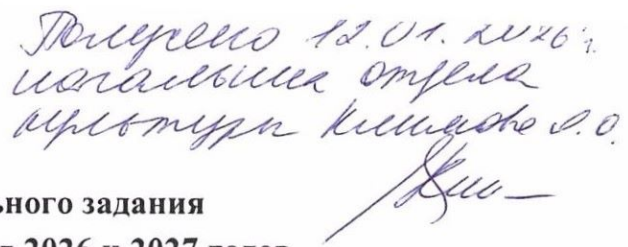 Получено 12.01.2026 г.
начальник отдела
культуры Климова О.
ьного задания
2026 и 2027 годов